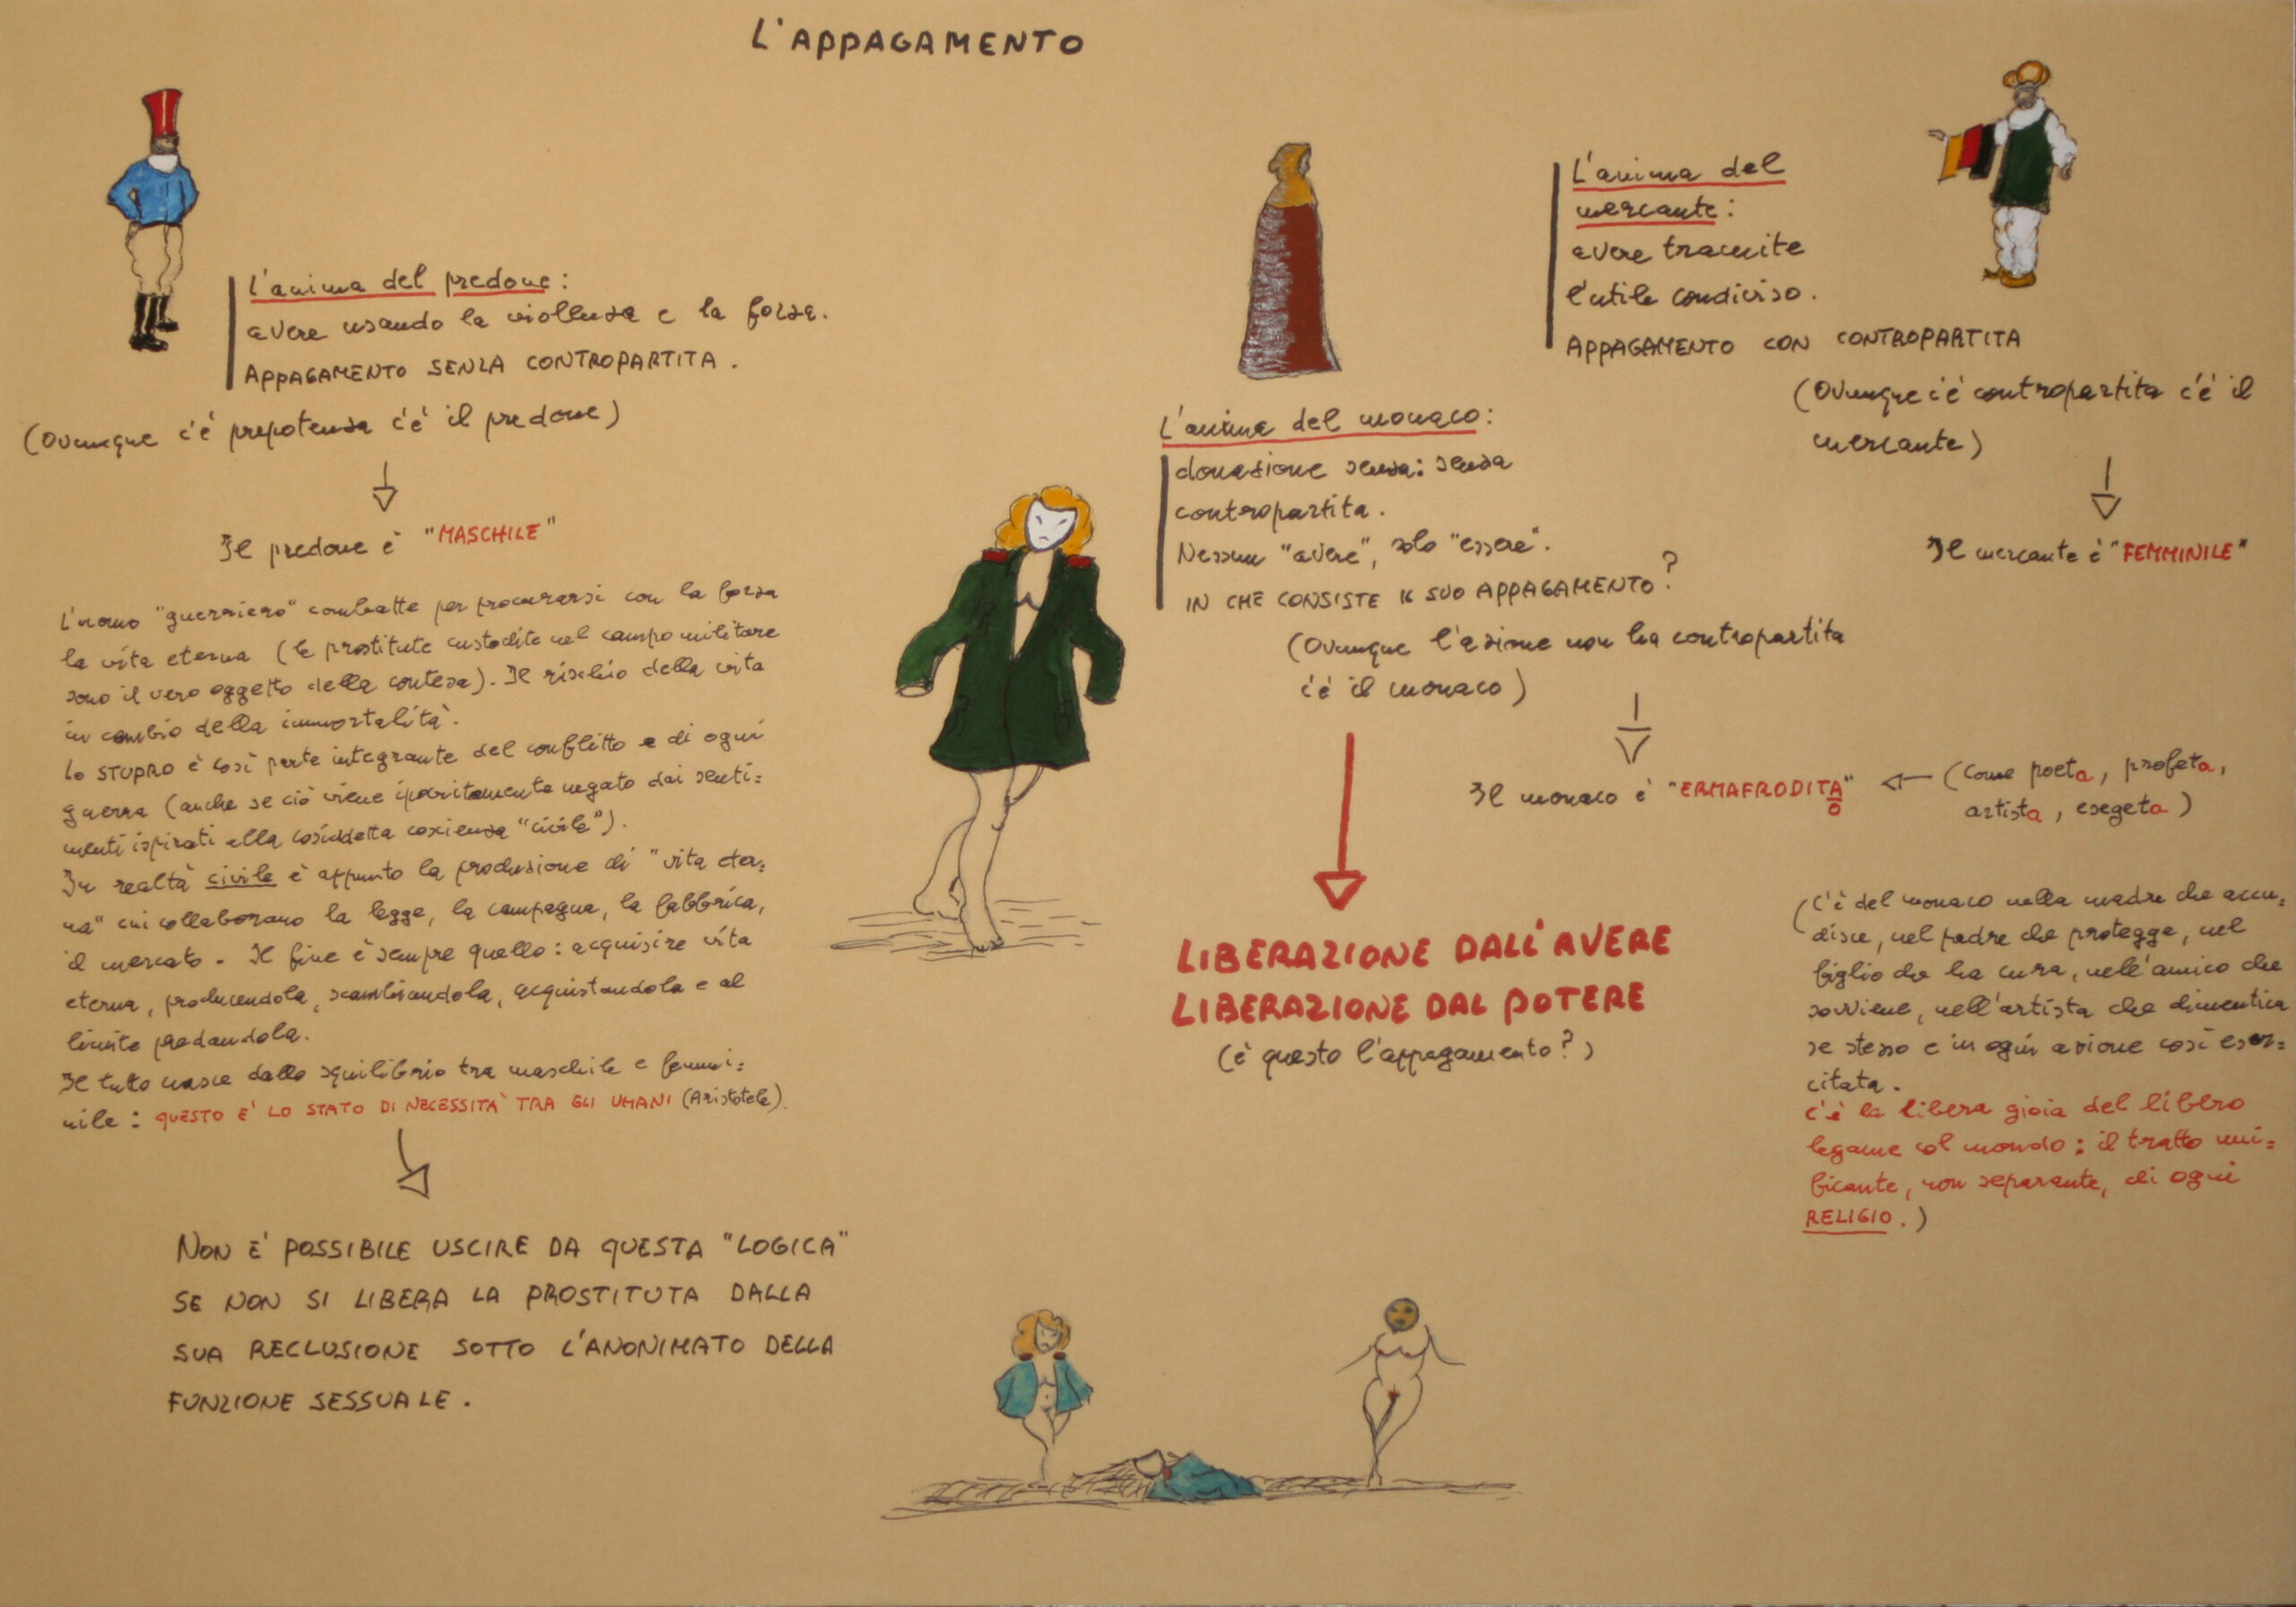 L'APPAGAMENTO
L'anima del predone:
avere usando la viollenza e la forza.
APPAGAMENTO SENZA CONTROPARTITA.
(Ovunque c'è prepotenza c'è il predone)
Il predone è "MASCHILE"
L'uomo "guerriero" combatte per procurarsi con la forza
la vita eterna (le prostitute custodite nel campo militare
sono il vero oggetto della contesa). Il rischio della vita
in cambio della immortalità.
Lo STUPRO è così parte integrante del conflitto e di ogni
guerra (anche se ciò viene ipocritamente negato dai senti=
menti ispirati alla cosiddetta coscienza "civile").
In realtà civile è appunto la produzione di "vita eter=
na" cui collaborano la legge, la campagna, la fabbrica,
il mercato. Il fine è sempre quello: acquisire vita
eterna, producendola, scambiandola, acquistandola e al
limite predandola.
Il tutto nasce dallo squilibrio tra maschile e femmi=
nile: QUESTO E' LO STATO DI NECESSITA' TRA GLI UMANI (Aristotele).
NON E' POSSIBILE USCIRE DA QUESTA "LOGICA"
SE NON SI LIBERA LA PROSTITUTA DALLA
SUA RECLUSIONE SOTTO L'ANONIMATO DELLA
FUNZIONE SESSUALE.
L'anima del monaco:
donazione senza: senza
contropartita.
Nessun "avere", solo "essere".
IN CHE CONSISTE IL SUO APPAGAMENTO?
(Ovunque l'azione non ha contropartita
c'è il monaco)
Il monaco è "ERMAFRODITA"
O
(come poeta, profeta,
artista, esegeta)
LIBERAZIONE DALL'AVERE
LIBERAZIONE DAL POTERE
(è questo l'appagamento?)
L'anima del
mercante:
avere tramite
l'utile condiviso.
APPAGAMENTO CON CONTROPARTITA
(Ovunque c'è contropartita c'è il
mercante)
Il mercante è "FEMMINILE"
(C'è del monaco nella madre che accu=
disce, nel padre che protegge, nel
figlio che ha cura, nell'amico che
sovviene, nell'artista che dimentica
se stesso e in ogni azione così eser=
citata.
C'è la libera gioia del libero
legame col mondo: il tratto uni=
ficante, non separante, di ogni
RELIGIO.)